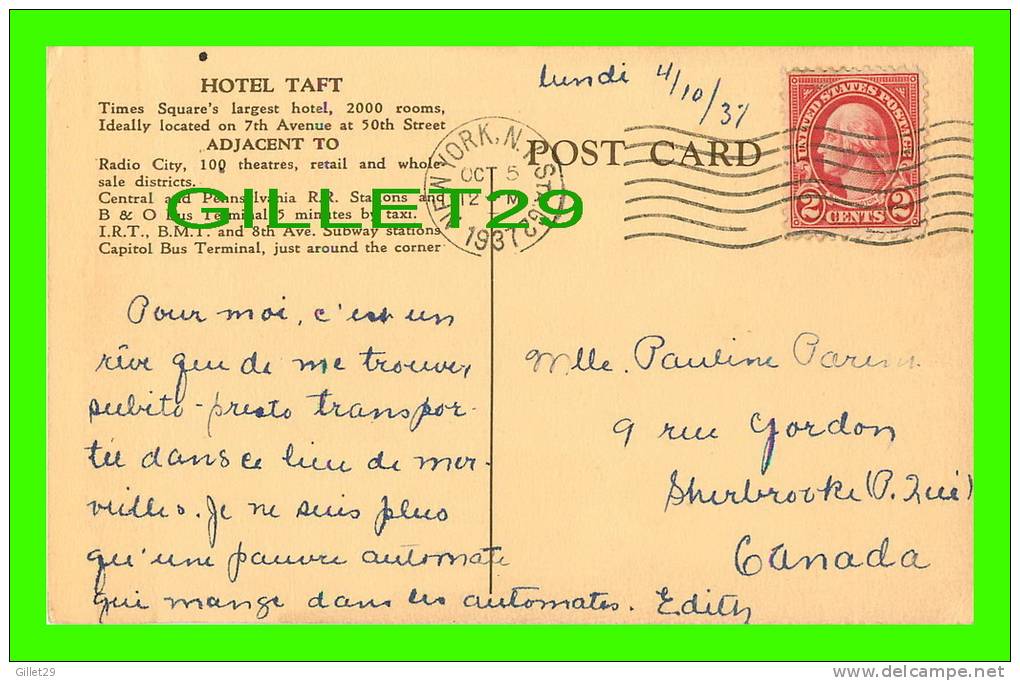 HOTEL TAFT
Times Square's largest hotel, 2000 rooms,
Ideally located on 7th Avenue at 50th Street
ADJACENT TO
Radio City, 100 theatres, retail and whole-
sale districts.
Central and Pennsylvania R.R. Stations and
B & O Bus Terminal 5 minutes by taxi.
I.R.T., B.M.T. and 8th Ave. Subway stations
Capitol Bus Terminal, just around the corner
GILLET29
lundi 4/10/37
POST CARD
NEW YORK, N.Y.
OCT 5
12 M
1937
UNITED STATES POSTAGE
2 CENTS 2
Pour moi, c'est un
rêve que de me trouver
subito-presto transpor-
tée dans ce lieu de mer-
veilles. Je ne suis plus
qu'une pauvre automate
qui mange dans les automates. Edith
Mlle. Pauline Parent
9 rue Gordon
Sherbrooke (P. Qué)
Canada
Gillet29
www.delcampe.net